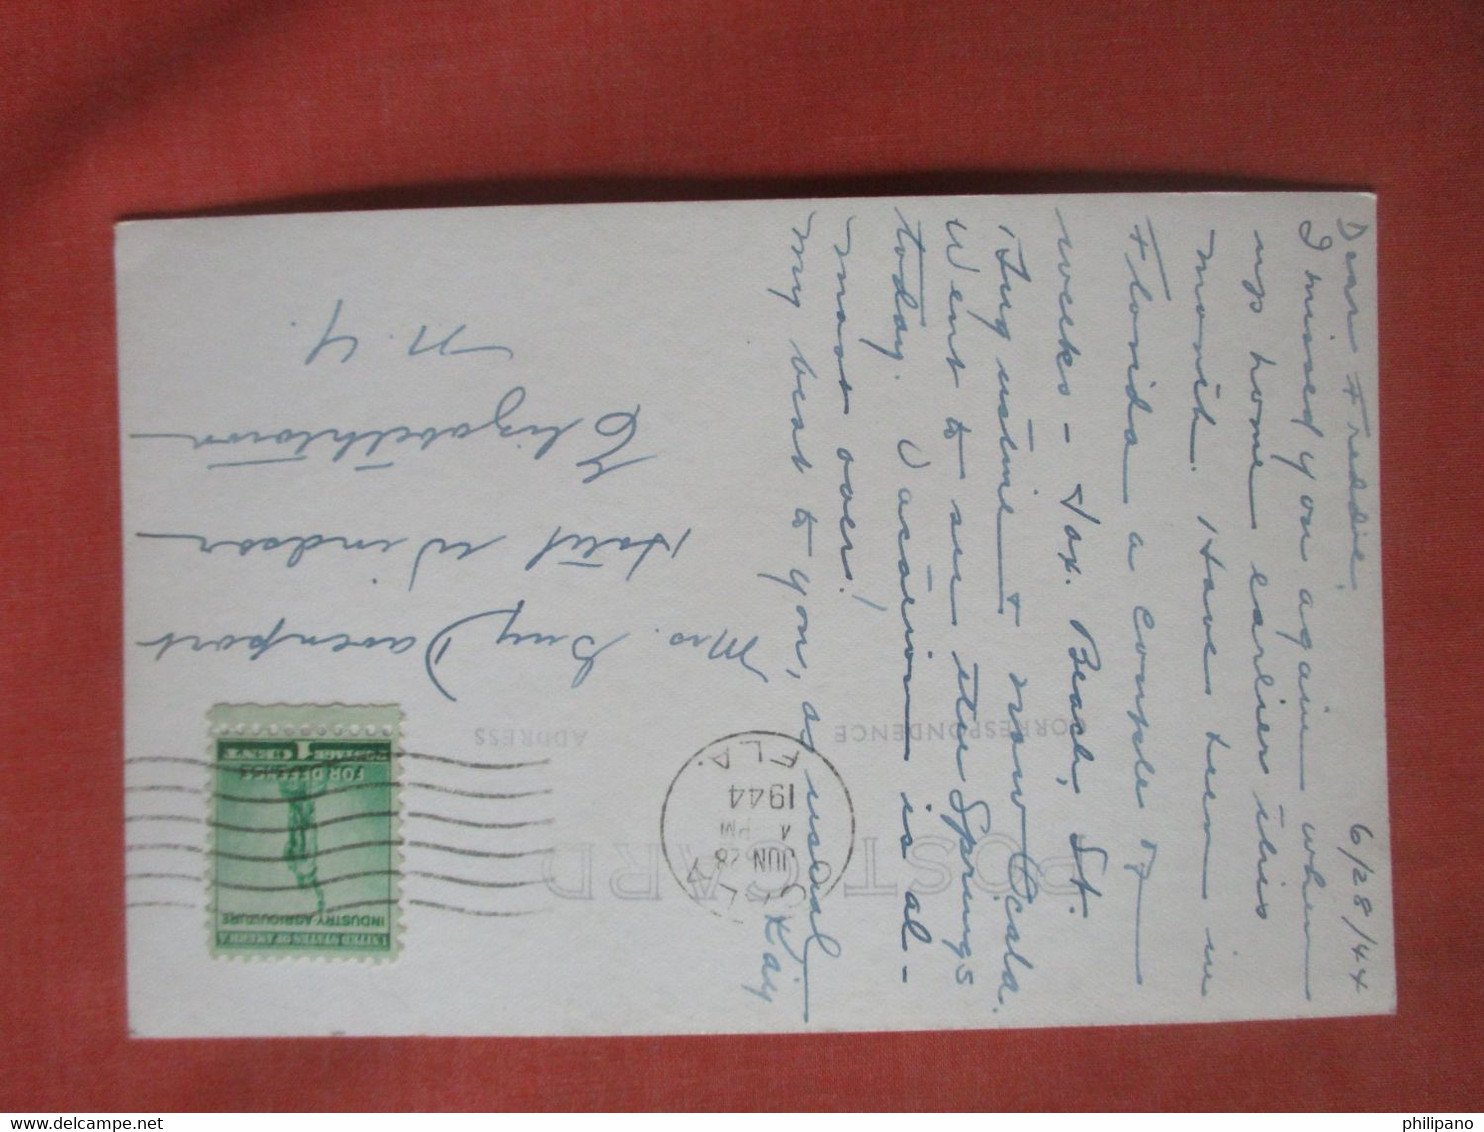 6/28/44
Dear Freddie,
I missed you again when
up home earlier this
month. Have been in
Florida a couple of
weeks - Jax. Beach, St.
Augustine & now Ocala.
Went to see the Springs
today. Vacation is al-
most over!
My best to you, as usual,
Kay
CORRESPONDENCE
POST CARD
ADDRESS
OCALA
JUN 28
4 PM
1944
FLA.
UNITED STATES OF AMERICA
INDUSTRY AGRICULTURE
FOR DEFENSE
POSTAGE 1 CENT
Mrs. Guy Davenport
Hotel Windsor
Elizabethtown
N. Y.
philipano